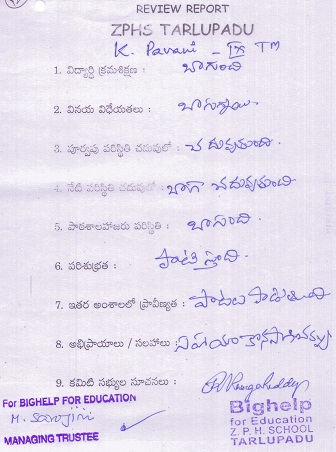 REVIEW REPORT
ZPHS TARLUPADU
K. Pavani - IX TM
1. విద్యార్థి క్రమశిక్షణ : బాగుంది
2. వినయ విధేయతలు : బాగున్నాయి.
3. పూర్వపు పరిస్థితి చదువులో : చదువుతుంది.
4. నేటి పరిస్థితి చదువులో : బాగా చదువుతుంది
5. పాఠశాలహాజరు పరిస్థితి : బాగుంది.
6. పరిశుభ్రత : పాటిస్తుంది.
7. ఇతర అంశాలలో ప్రావీణ్యత : పాటలు పాడుతుంది
8. అభిప్రాయాలు / సలహాలు :
9. కమిటి సభ్యుల సూచనలు :
For BIGHELP FOR EDUCATION
M. Sarojini
MANAGING TRUSTEE
Bighelp
for Education
Z. P. H. SCHOOL
TARLUPADU